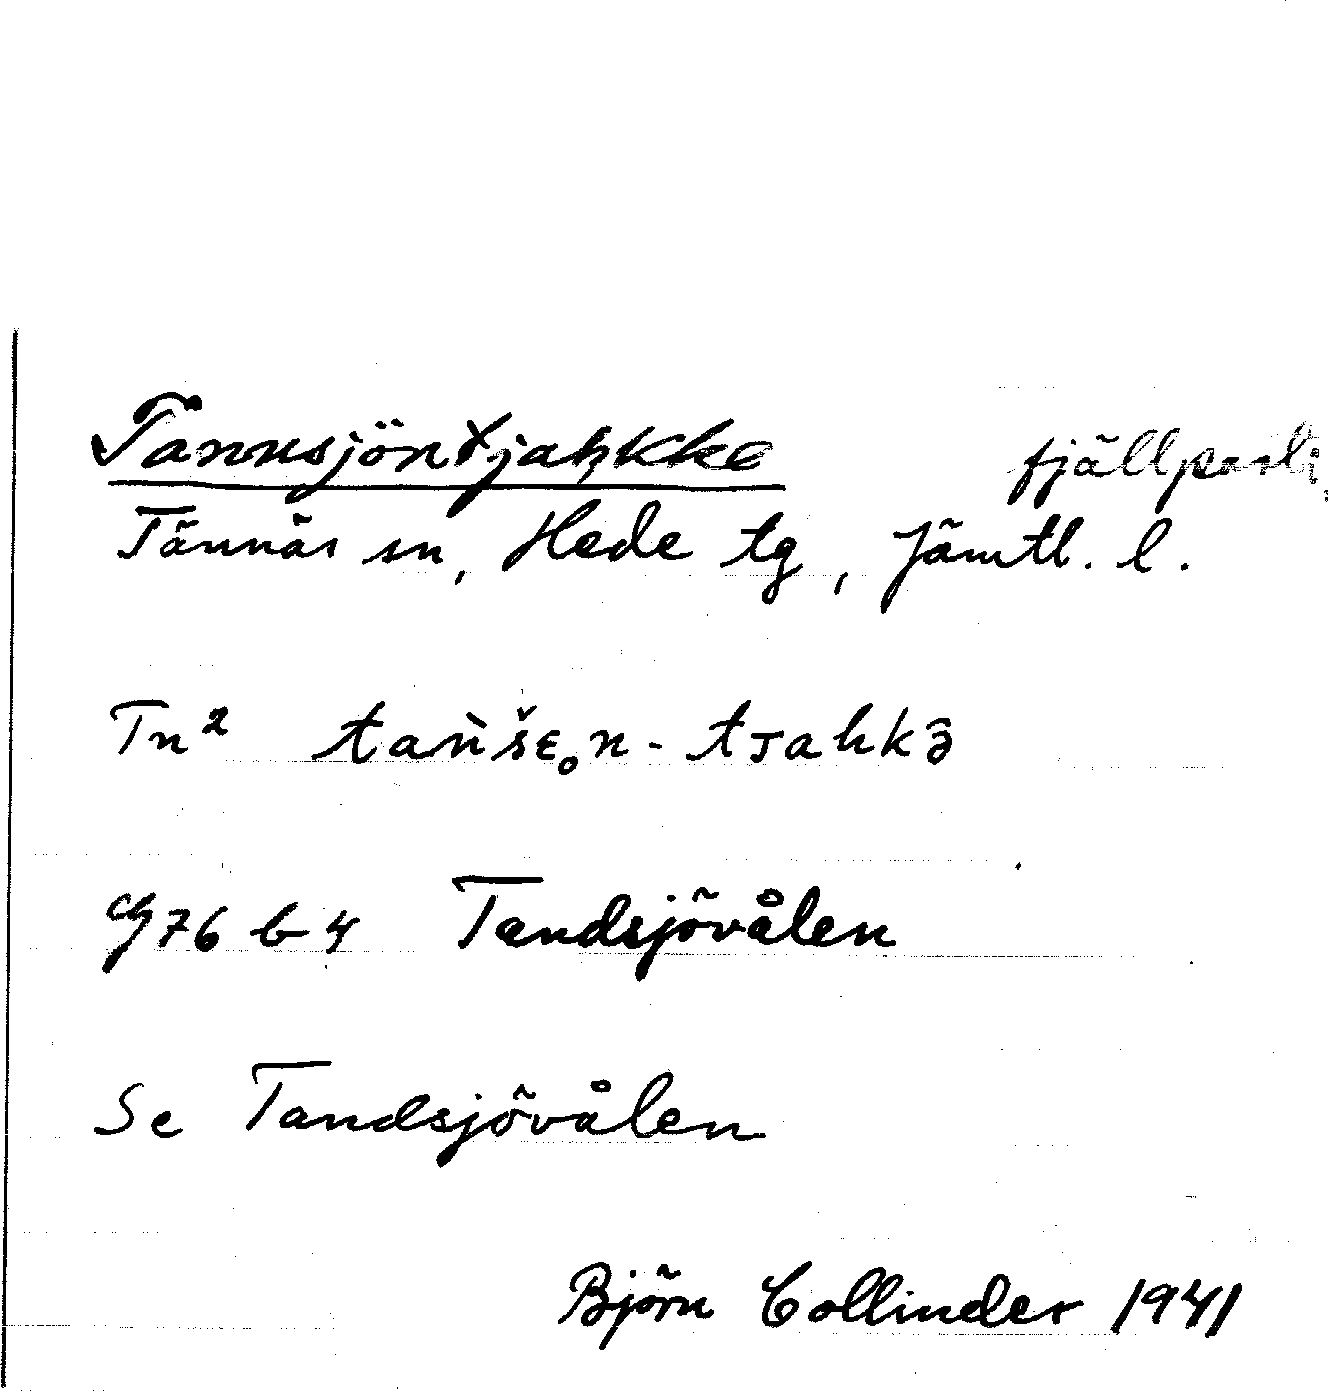 Tannsjöntjahkke fjällparti
Tännäs sn, Hede tg, Jämtl. l.
Tn²
G 76 b 4 Tandsjövålen
Se Tandsjövålen
Björn Collinder 1941